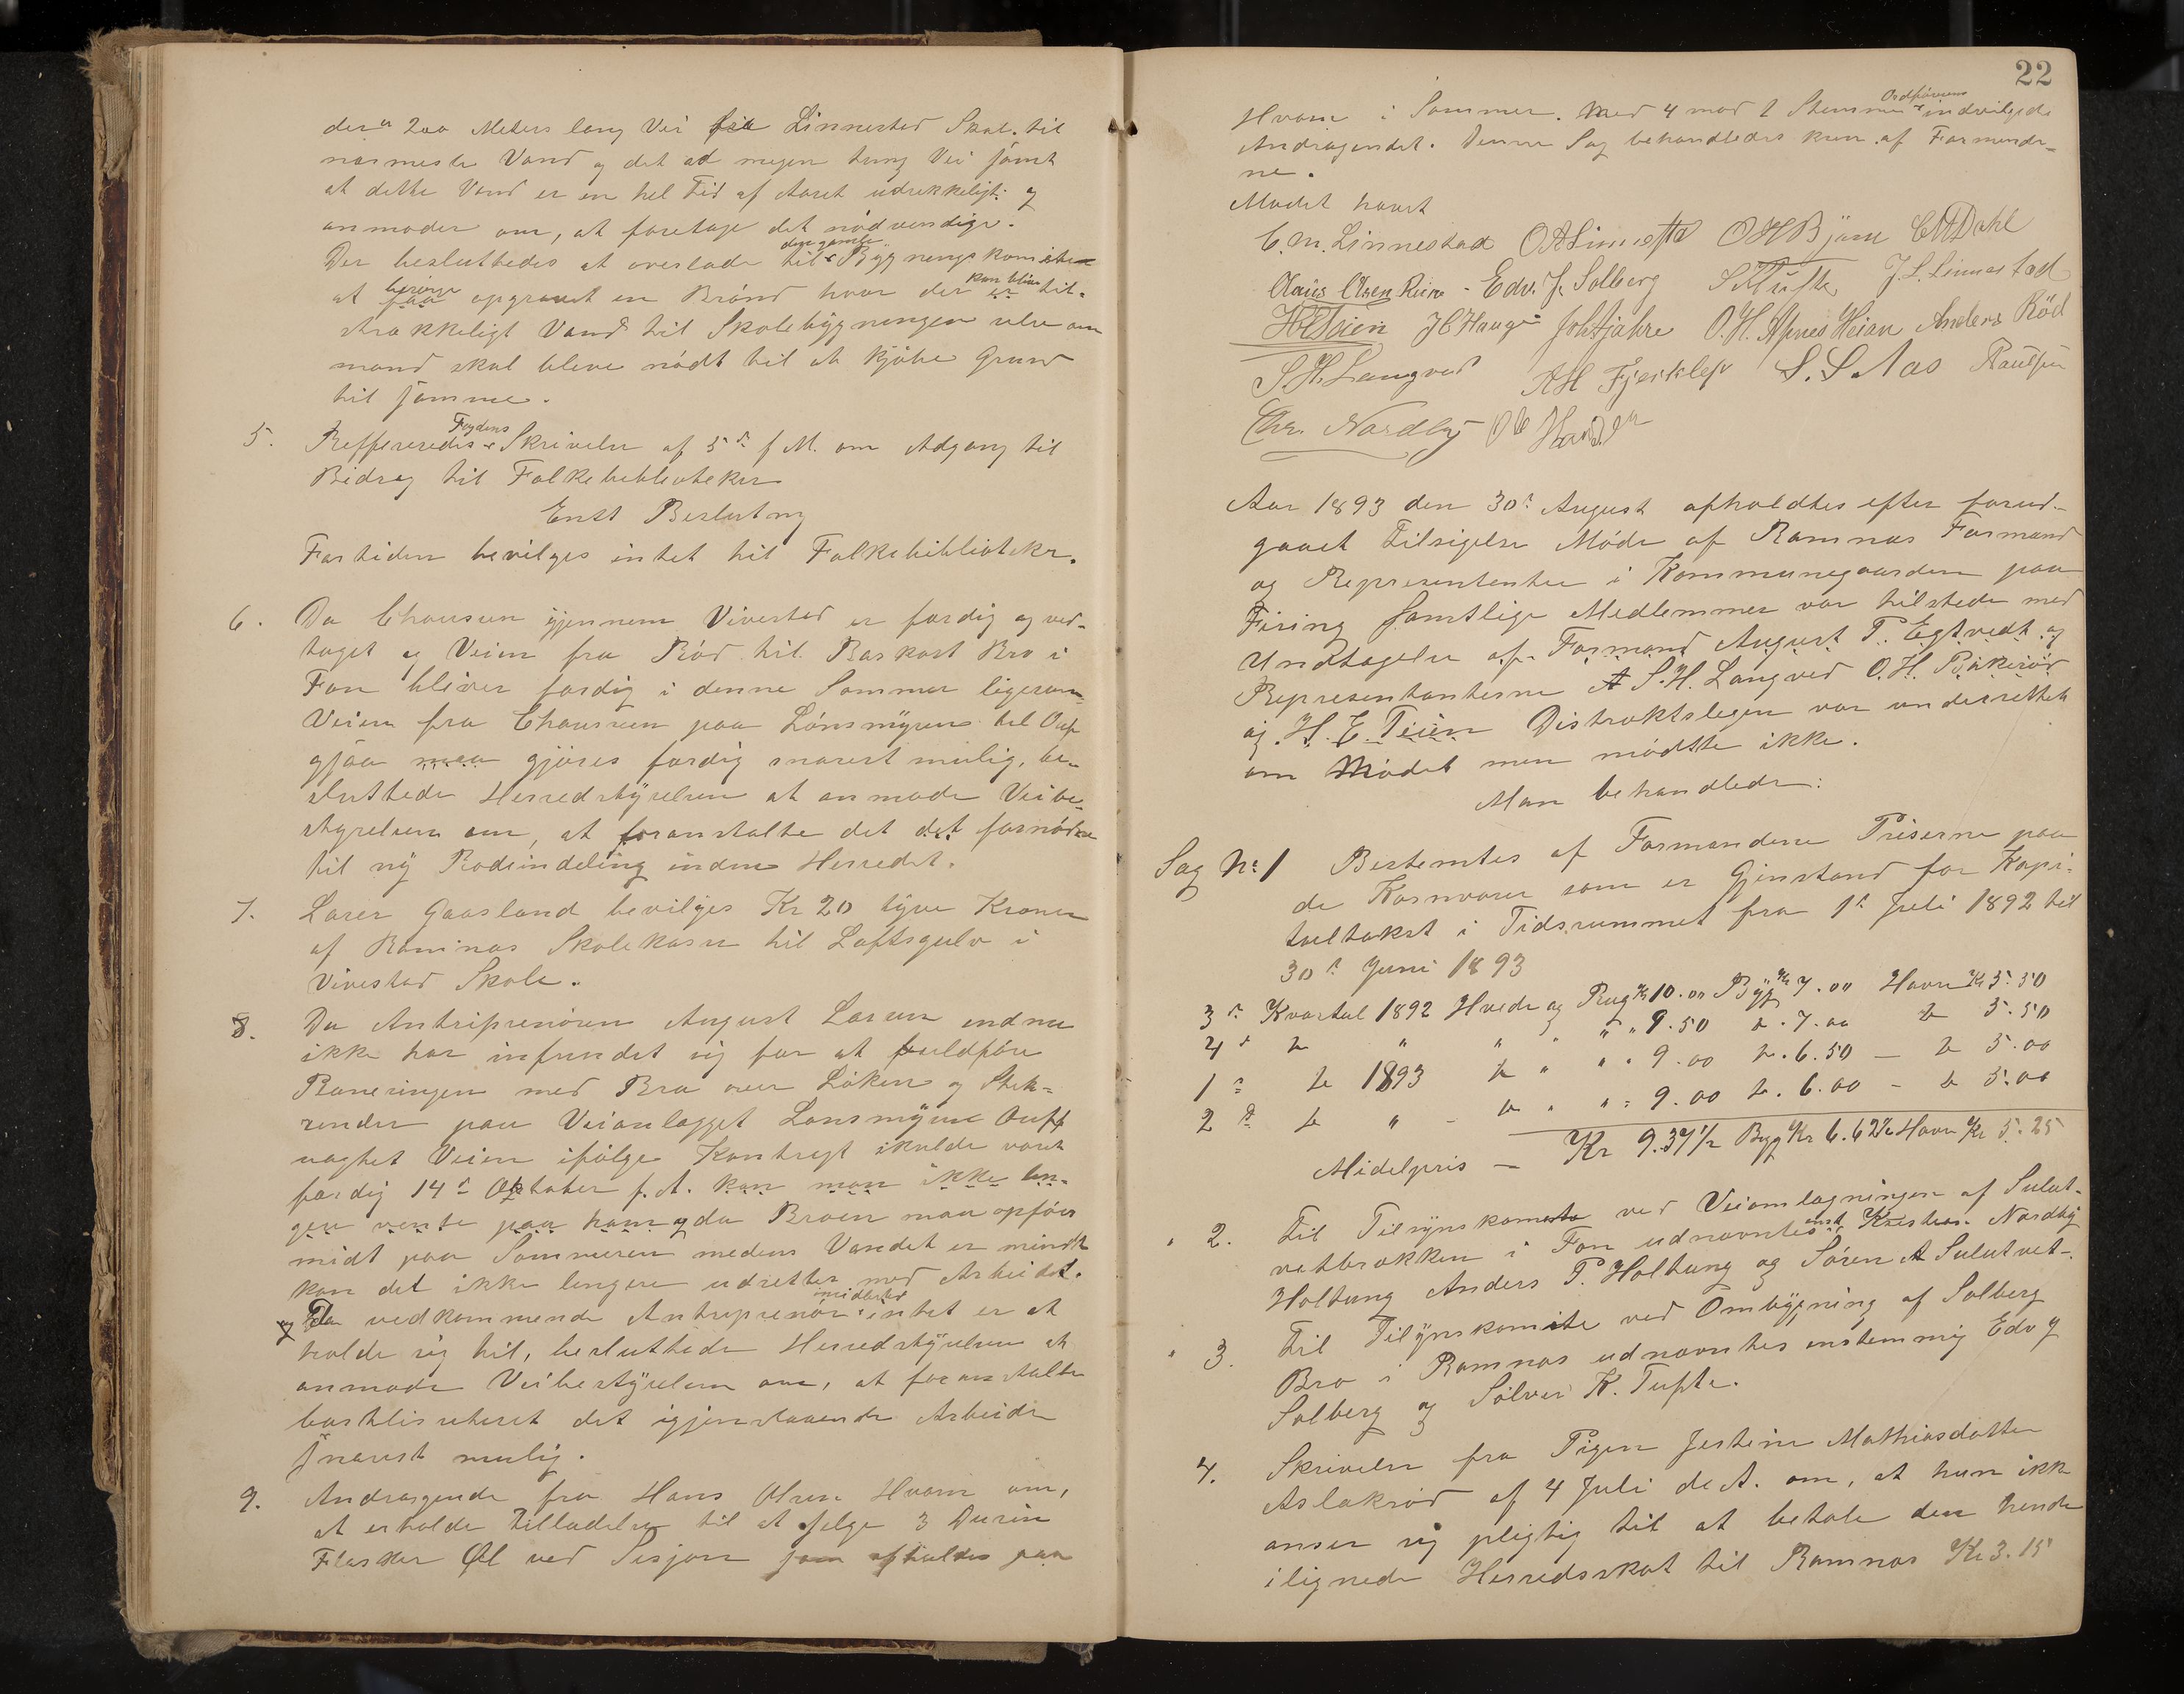 der er 200 Meters lang Vei fra Linnestad Skol. til
nærmeste Vand og det ad megen tung Vei samt
at dette Vand er en hel Tid af Aaret udrekkeligt og
anmoder om, at foretage det nødvendige.
Der besluttedes at overlade til den gamle Bygnings komite
at besørge opgravet en Brønd hvor der kan blive til-
strækkeligt Vand til Skolebygningen selv om
mand skal bleve nødt til at kjøbe Grund
til samme.
5. Reffereredes Fogdens Skrivelse af 5te f M. om Adgang til
Bidrag til Folkebiblioteker
Enst Beslutning
Fortiden bevilges intet til Folkebiblioteker.
6. Da Chausseen igjennem Vivestad er færdig og ved-
taget og Veien fra Rød til Baskast Bro i
Fon bliver færdig i denne Sommer ligesom
Veien fra Chausseen paa Lønsmyren til Oup
gjaa maa gjøres færdig snarest mulig, be-
sluttede Herredstyrelsen at anmode Veibe-
styrelsen om, at foranstalte det det fornødne
til ny Rodeindeling inden Herredet.
7. Lærer Gaasland bevilges Kr 20 tyve Kroner
af Ramnæs Skolekasse til Loftsgulv i
Vivestad Skole.
8. Da Antreprenøren August Larsen endnu
ikke har infundet sig for at fuldføre
Planeringen med Bro over Løken og Stik-
render paa Veianlægget Lønsmyren Oupf
uagtet Veien ifølge Kontragt skulde vært
færdig 14de Oktober f. A. kan man ikke len-
ger vente paa ham og da Broen maa opføres
midt paa Sommeren medens Vandet er mindst
kan det ikke lengere udsettes med Arbeidet.
og Da vedkommende Antreprenør midlertid intet er at
holde sig til, besluttede Herredstyrelsen at
anmode Veibestyrelsen om, at foranstalte
bortlisiteret det igjenstaaende Arbeide
snarest mulig.
9. Andragende fra Hans Olsen Hvam om,
at erholde Tilladelse til at selge 3 Dusin
Flasker Øl ved Sesjon som afholdes paa
22
Hvam i Sommer. Med 4 mod 1 Stemmer Ordførerens indvilgede
Andragendet. Denne Sag behandledes kun af Formænde-
ne.
Mødet hævet
C. M. Linnestad O A Linnestad O H Bjøre C M Dahl
Claus Olsen Rein - Edv. J. Solberg S K Tufte J. L. Linnestad
H E Teien J C Hauge Joh Stjahre O. H. Apnes Heian Anders Rød
S. H. Langved A H Fjerkley S. S Aas Paulsen
Chr. Nordby O C Hansen
Aar 1893 den 30te August afholdtes efter forud-
gaaet Tilsigelse Møde af Ramnæs Formænd
og Representenster i Kommunegaarden paa
Firing Samtlige Medlemmer var tilstede med
Undtagelse af Formand August P. Egtvedt og
Representanterne S. H. Langved O. H. Bakerød
og H. E. Teien Distriktslegen var underrettet
om Mødet men mødtte ikke.
Man behandlede:
Sag No 1 Bestemtes af Formændene Priserne paa
de Kornvarer som er Gjenstand for Kapi-
teltakst i Tidsrummet fra 1te Juli 1892 til
30te Juni 1893
3de Kvartal 1892 Hvede og Rug Kr 10.00 Byg Kr 7.00 Havre Kr 5.50
4de do " " " " 9.50 do. 7.00 do 5.50
1te do 1893 do " " 9.00 do. 6.50 - do 5.00
2de do " - do " " 9.00 do. 6.00 - do 5.00
Midelpris - Kr 9.37 1/2 Byg Kr 6.62 1/2 Havre Kr 5.25
" 2. Til Tilsynskomite ved Veiomlægningen af Sulut-
vetbrækken i Fon udnævntes enst Kristian Nordby
Holtung Anders P. Holtung og Søren A Sulutvet-.
" 3. Til Tilsynskomite ved Ombygning af Solberg
Bro i Ramnæs udnævntes enstemmig Edv J
Solberg og Sølver K. Tufte.
4. Skrivelse fra Pigen Jestine Mathiasdatter
Aslakrød af 4 Juli d. A. om, at hun ikke
anser sig pligtig til at betale den hende
ilignede Herredsskat til Ramnæs Kr 3.15